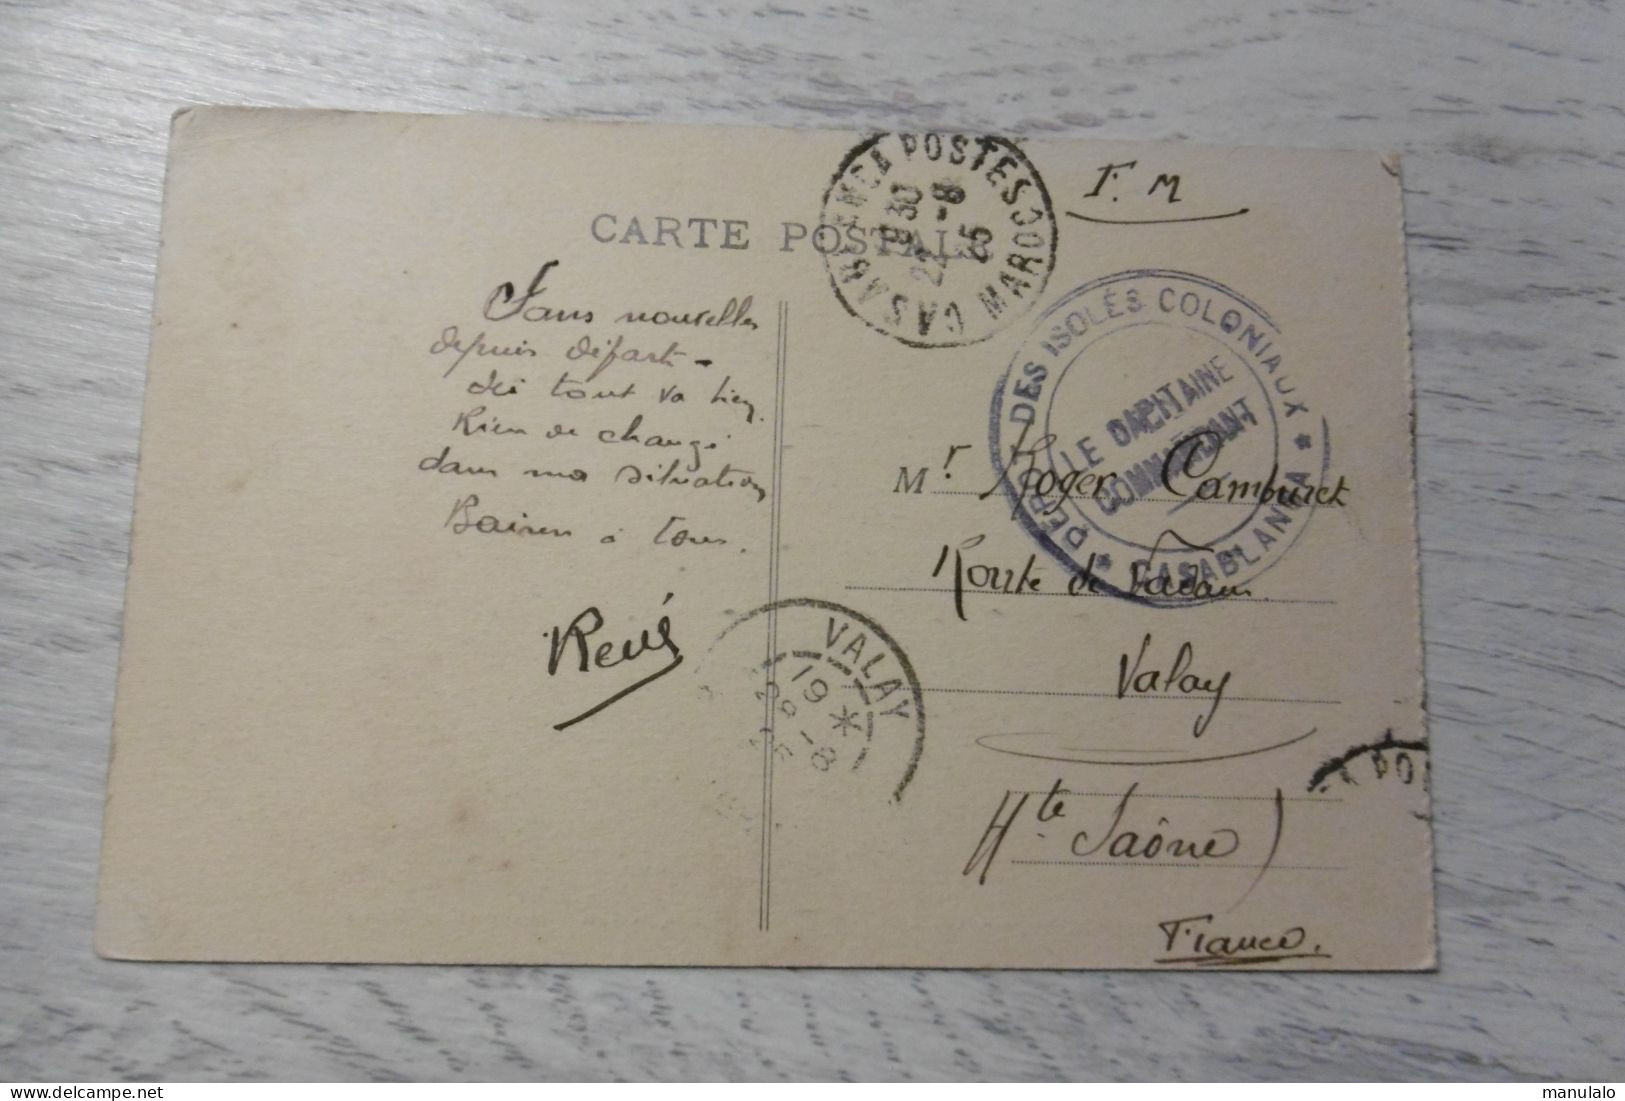 CARTE POSTALE
F. M
CASABLANCA POSTES MAROC
9 30
22 -8
25
DEPOT DES ISOLÉS COLONIAUX * CASABLANCA *
LE CAPITAINE
COMMANDANT
Sans nouvelles
depuis départ -
Ici tout va bien.
Rien de changé
dans ma situation
Baisers à tous.
René
Mr. Roger Cambuzet
Route de Vadans
Valay
Hte Saône)
France.
VALAY
19 *
28 -8
25
PO
manulalo